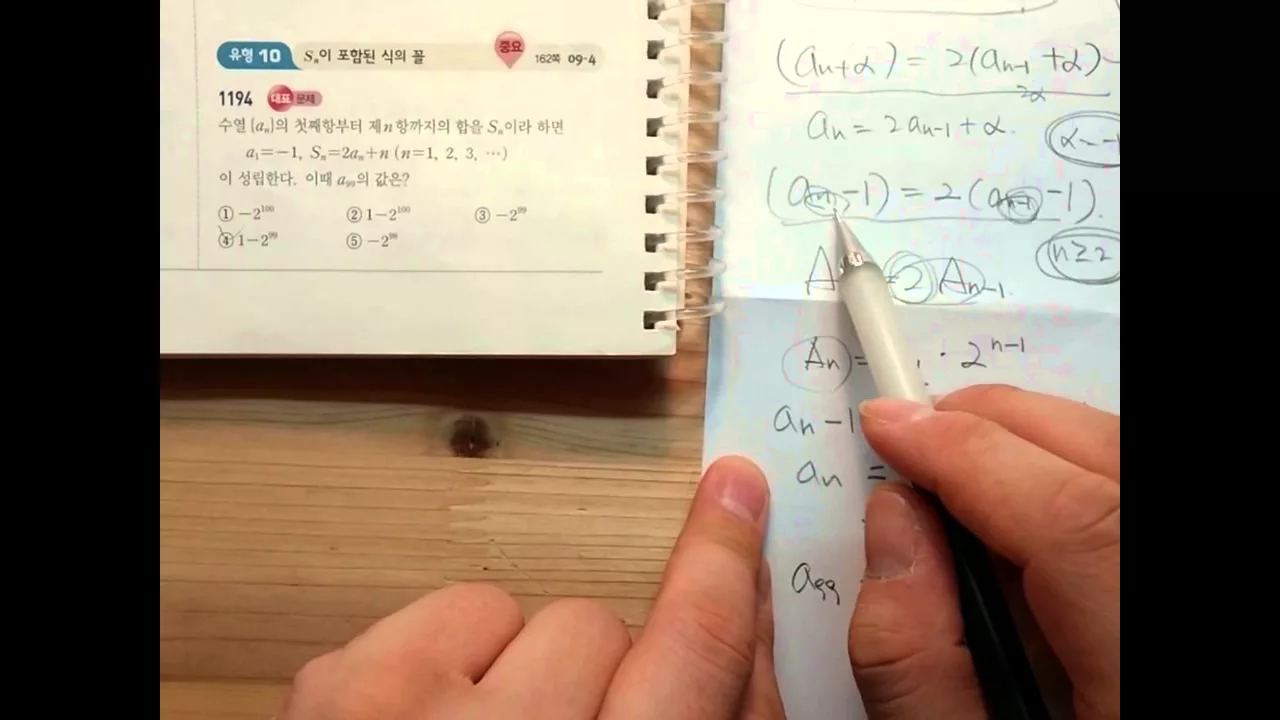 유형 10 Sₙ이 포함된 식의 꼴 중요 162쪽 09-4
1194 대표 문제
수열 {aₙ}의 첫째항부터 제n항까지의 합을 Sₙ이라 하면
a₁=-1, Sₙ=2aₙ+n (n=1, 2, 3, ⋯)
이 성립한다. 이때 a₉₉의 값은?
① -2¹⁰⁰ ② 1-2¹⁰⁰ ③ -2⁹⁹
④ 1-2⁹⁹ ⑤ -2⁹⁸
(aₙ+α) = 2(aₙ₋₁+α)
2α
aₙ = 2aₙ₋₁+α
α=-1
(aₙ-1) = 2(aₙ₋₁-1).
n≥2
A = 2Aₙ₋₁.
Aₙ = · 2ⁿ⁻¹
aₙ-1
aₙ =
a₉₉